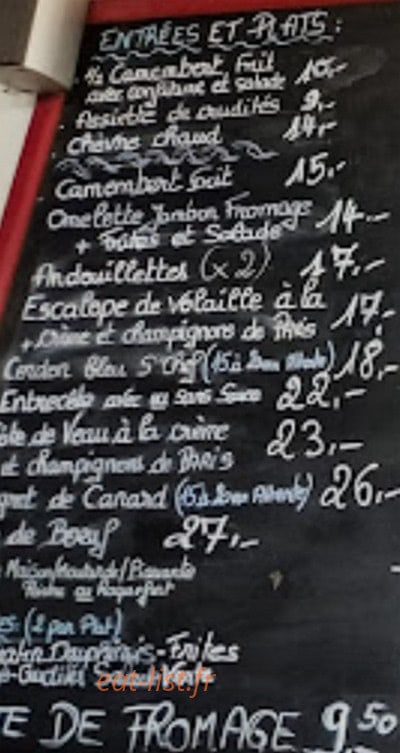 ENTRÉES ET PLATS :
. ½ Camembert Fruit 10,-
avec confiture et salade
. Assiette de crudités 9,-
. Chèvre chaud 14,-
. Camembert Fruit 15,-
Omelette Jambon Fromage 14,-
+ Frites et Salade
Andouillettes (x2) 17,-
Escalope de volaille à la 17,-
+ crème et champignons de Paris
Cordon Bleu S Chef (15 à 20mn Attente) 18,-
Entrecôte avec ou Sans Sauce 22,-
ôte de Veau à la crème 23,-
et champignons de PARIS
gret de Canard (15 à 20mn Attente) 26,-
de Boeuf 27,-
Maison/Moutarde/Piquante
au Roquefort
es (2 par Plat)
Dauphinois-Frites
eat-list.fr
TE DE FROMAGE 9,50